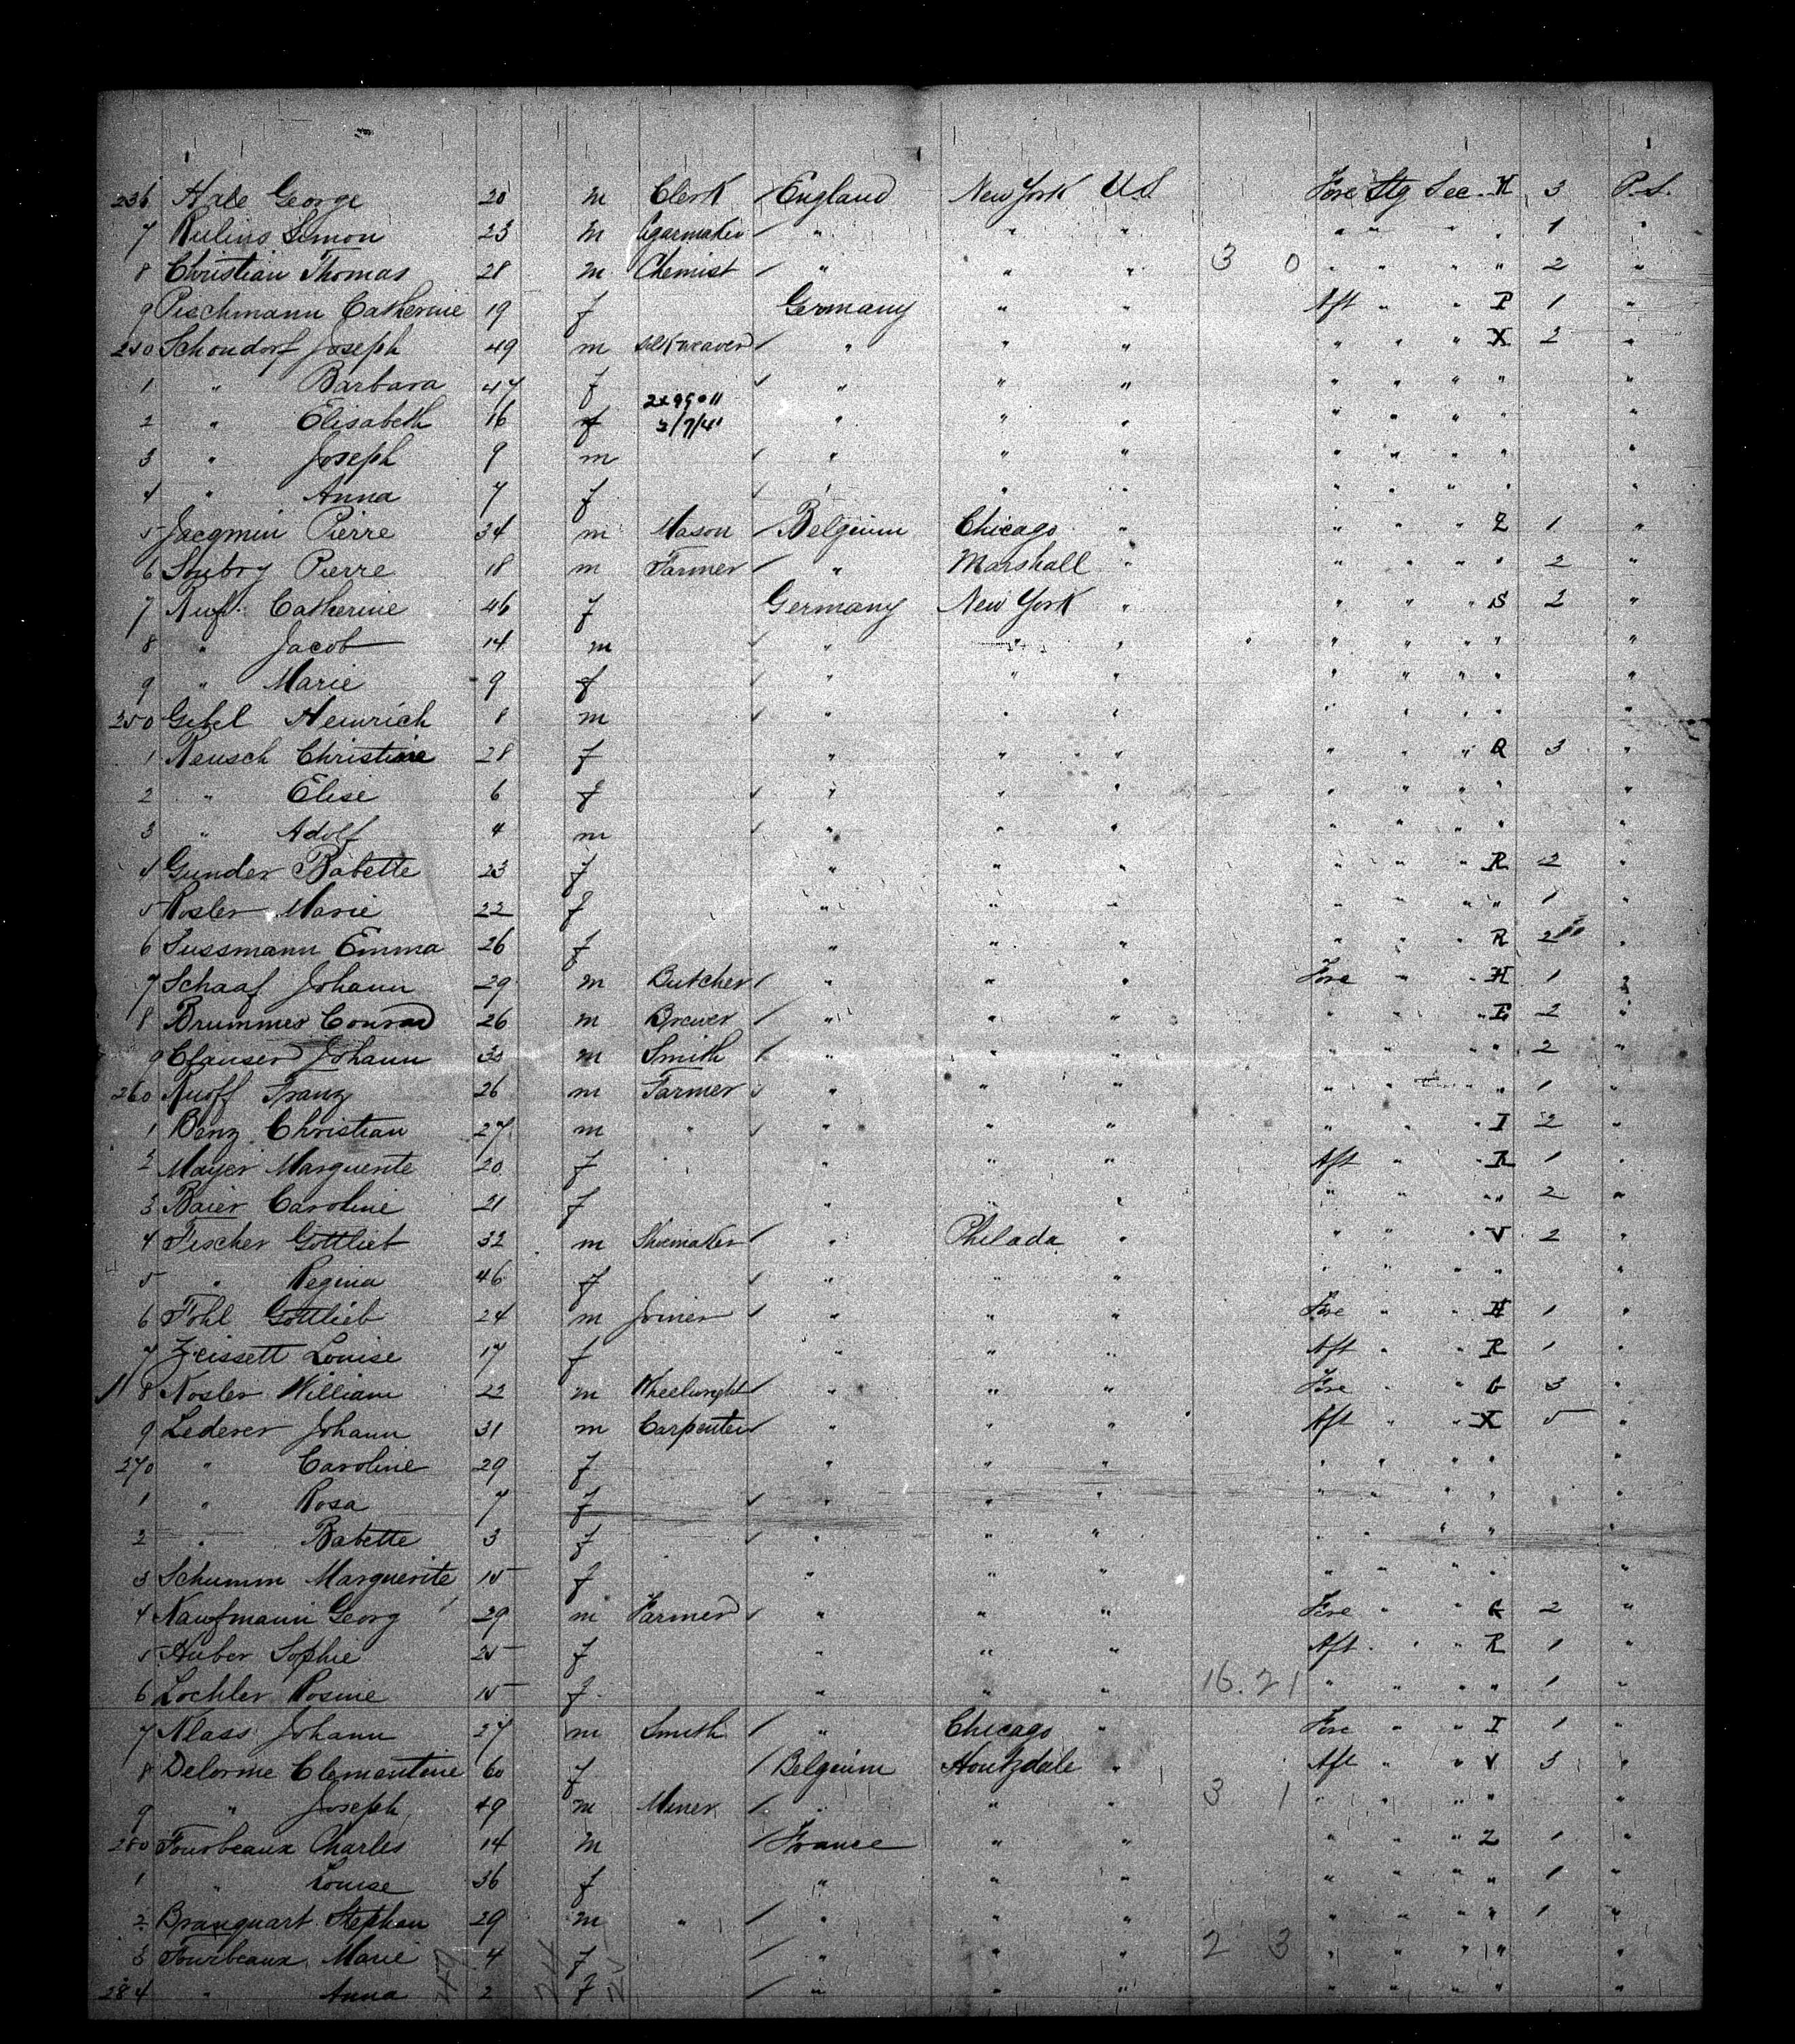 236 Hale George 20 m Clerk England New York U.S. Fore Stg Sec. H 3 P.S.
7 Rulins Simon 23 m Cigarmaker " " " " " " " 1 "
8 Christian Thomas 28 m Chemist " " " 3 0 " " " " 2 "
9 Pischmann Catherine 19 f Germany " " Aft " " P 1 "
240 Schondorf Joseph 49 m Silkweaver " " " " " " X 2 "
1 " Barbara 47 f " " " " " " " "
2 " Elisabeth 16 f 2x99011 3/7/41 " " " " " " " "
3 " Joseph 9 m " " " " " " " "
4 " Anna 7 f " " " " " " " "
5 Jacqmin Pierre 34 m Mason Belgium Chicago " " " " Z 1 "
6 Soubry Pierre 18 m Farmer " Marshall " " " " " 2 "
7 Ruf Catherine 46 f Germany New York " " " " S 2 "
8 " Jacob 14 m " " " " " " " "
9 " Marie 9 f " " " " " " " "
250 Gebel Heinrich 8 m " " " " " " " "
1 Reusch Christine 28 f " " " " " " Q 3 "
2 " Elise 6 f " " " " " " " "
3 " Adolf 4 m " " " " " " " "
4 Gunder Babette 23 f " " " " " " R 2 "
5 Rosler Marie 22 f " " " " " " " 1 "
6 Sussmann Emma 26 f " " " " " " R 2 "
7 Schaaf Johann 29 m Butcher " " " Fore " " H 1 "
8 Brummer Conrad 26 m Brewer " " " " " " E 2 "
9 Clauser Johann 33 m Smith " " " " " " " 2 "
260 Ruoff Franz 26 m Farmer " " " " " " " 1 "
1 Benz Christian 27 m " " " " " " " I 2 "
2 Mayer Marguerite 20 f " " " Aft " " R 1 "
3 Baier Caroline 21 f " " " " " " " 2 "
4 Fischer Gottlieb 32 m Shoemaker " Philada " " " " V 2 "
5 " Regina 46 f " " " " " " " "
6 Fohl Gottlieb 24 m Joiner " " " Fore " " H 1 "
7 Zeissett Louise 17 f " " " Aft " " R 1 "
8 Kosler William 22 m Wheelwright " " " Fore " " G 3 "
9 Lederer Johann 31 m Carpenter " " " Aft " " X 5 "
270 " Caroline 29 f " " " " " " " "
1 " Rosa 7 f " " " " " " " "
2 " Babette 3 f " " " " " " "
3 Schumm Marguerite 15 f " " " " " " " "
4 Kaufmann Georg 29 m Farmer " " " Fore " " G 2 "
5 Huber Sophie 25 f " " " Aft " " R 1 "
6 Lochler Rosine 15 f " " " 16.21 " " " " 1 "
7 Klass Johann 27 m Smith " Chicago " Fore " " I 1 "
8 Delorme Clementine 60 f Belgium Houtzdale " Aft " " V 3 "
9 " Joseph 49 m Miner " " " 3 1 " " " " "
280 Fourbeaux Charles 14 m France " " " " " Z 1 "
1 " Louise 36 f " " " " " " " 1 "
2 Branquart Stephan 29 m " " " " " " " " 1 "
3 Fourbeaux Marie 4 f " " " 2 3 " " " " "
284 " Anna 2 f " " " " " " " "